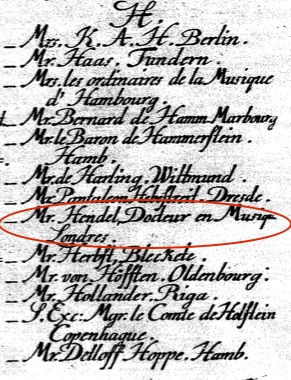 H.
_ Mrs. K. A. H. Berlin.
_ Mr. Haas. Tundern.
_ Mrs. les ordinaires de la Musique
d' Hambourg.
_ Mr. Bernard de Hamm. Marbourg
_ Mr. le Baron de Hammerstein.
Hamb.
_ Mr. de Harling. Wittmund.
_ Mr. Pantaleon Hebestreit. Dresde.
_ Mr. Hendel, Docteur en Musiq
Londres.
_ Mr. Herbst, Bleckete.
_ Mr. von Höfften. Oldenbourg:
_ Mr. Hollander. Riga.
_ S. Exc: Mgr. le Comte de Holstein
Copenhague.
_ Mr. Detloff Hoppe. Hamb.